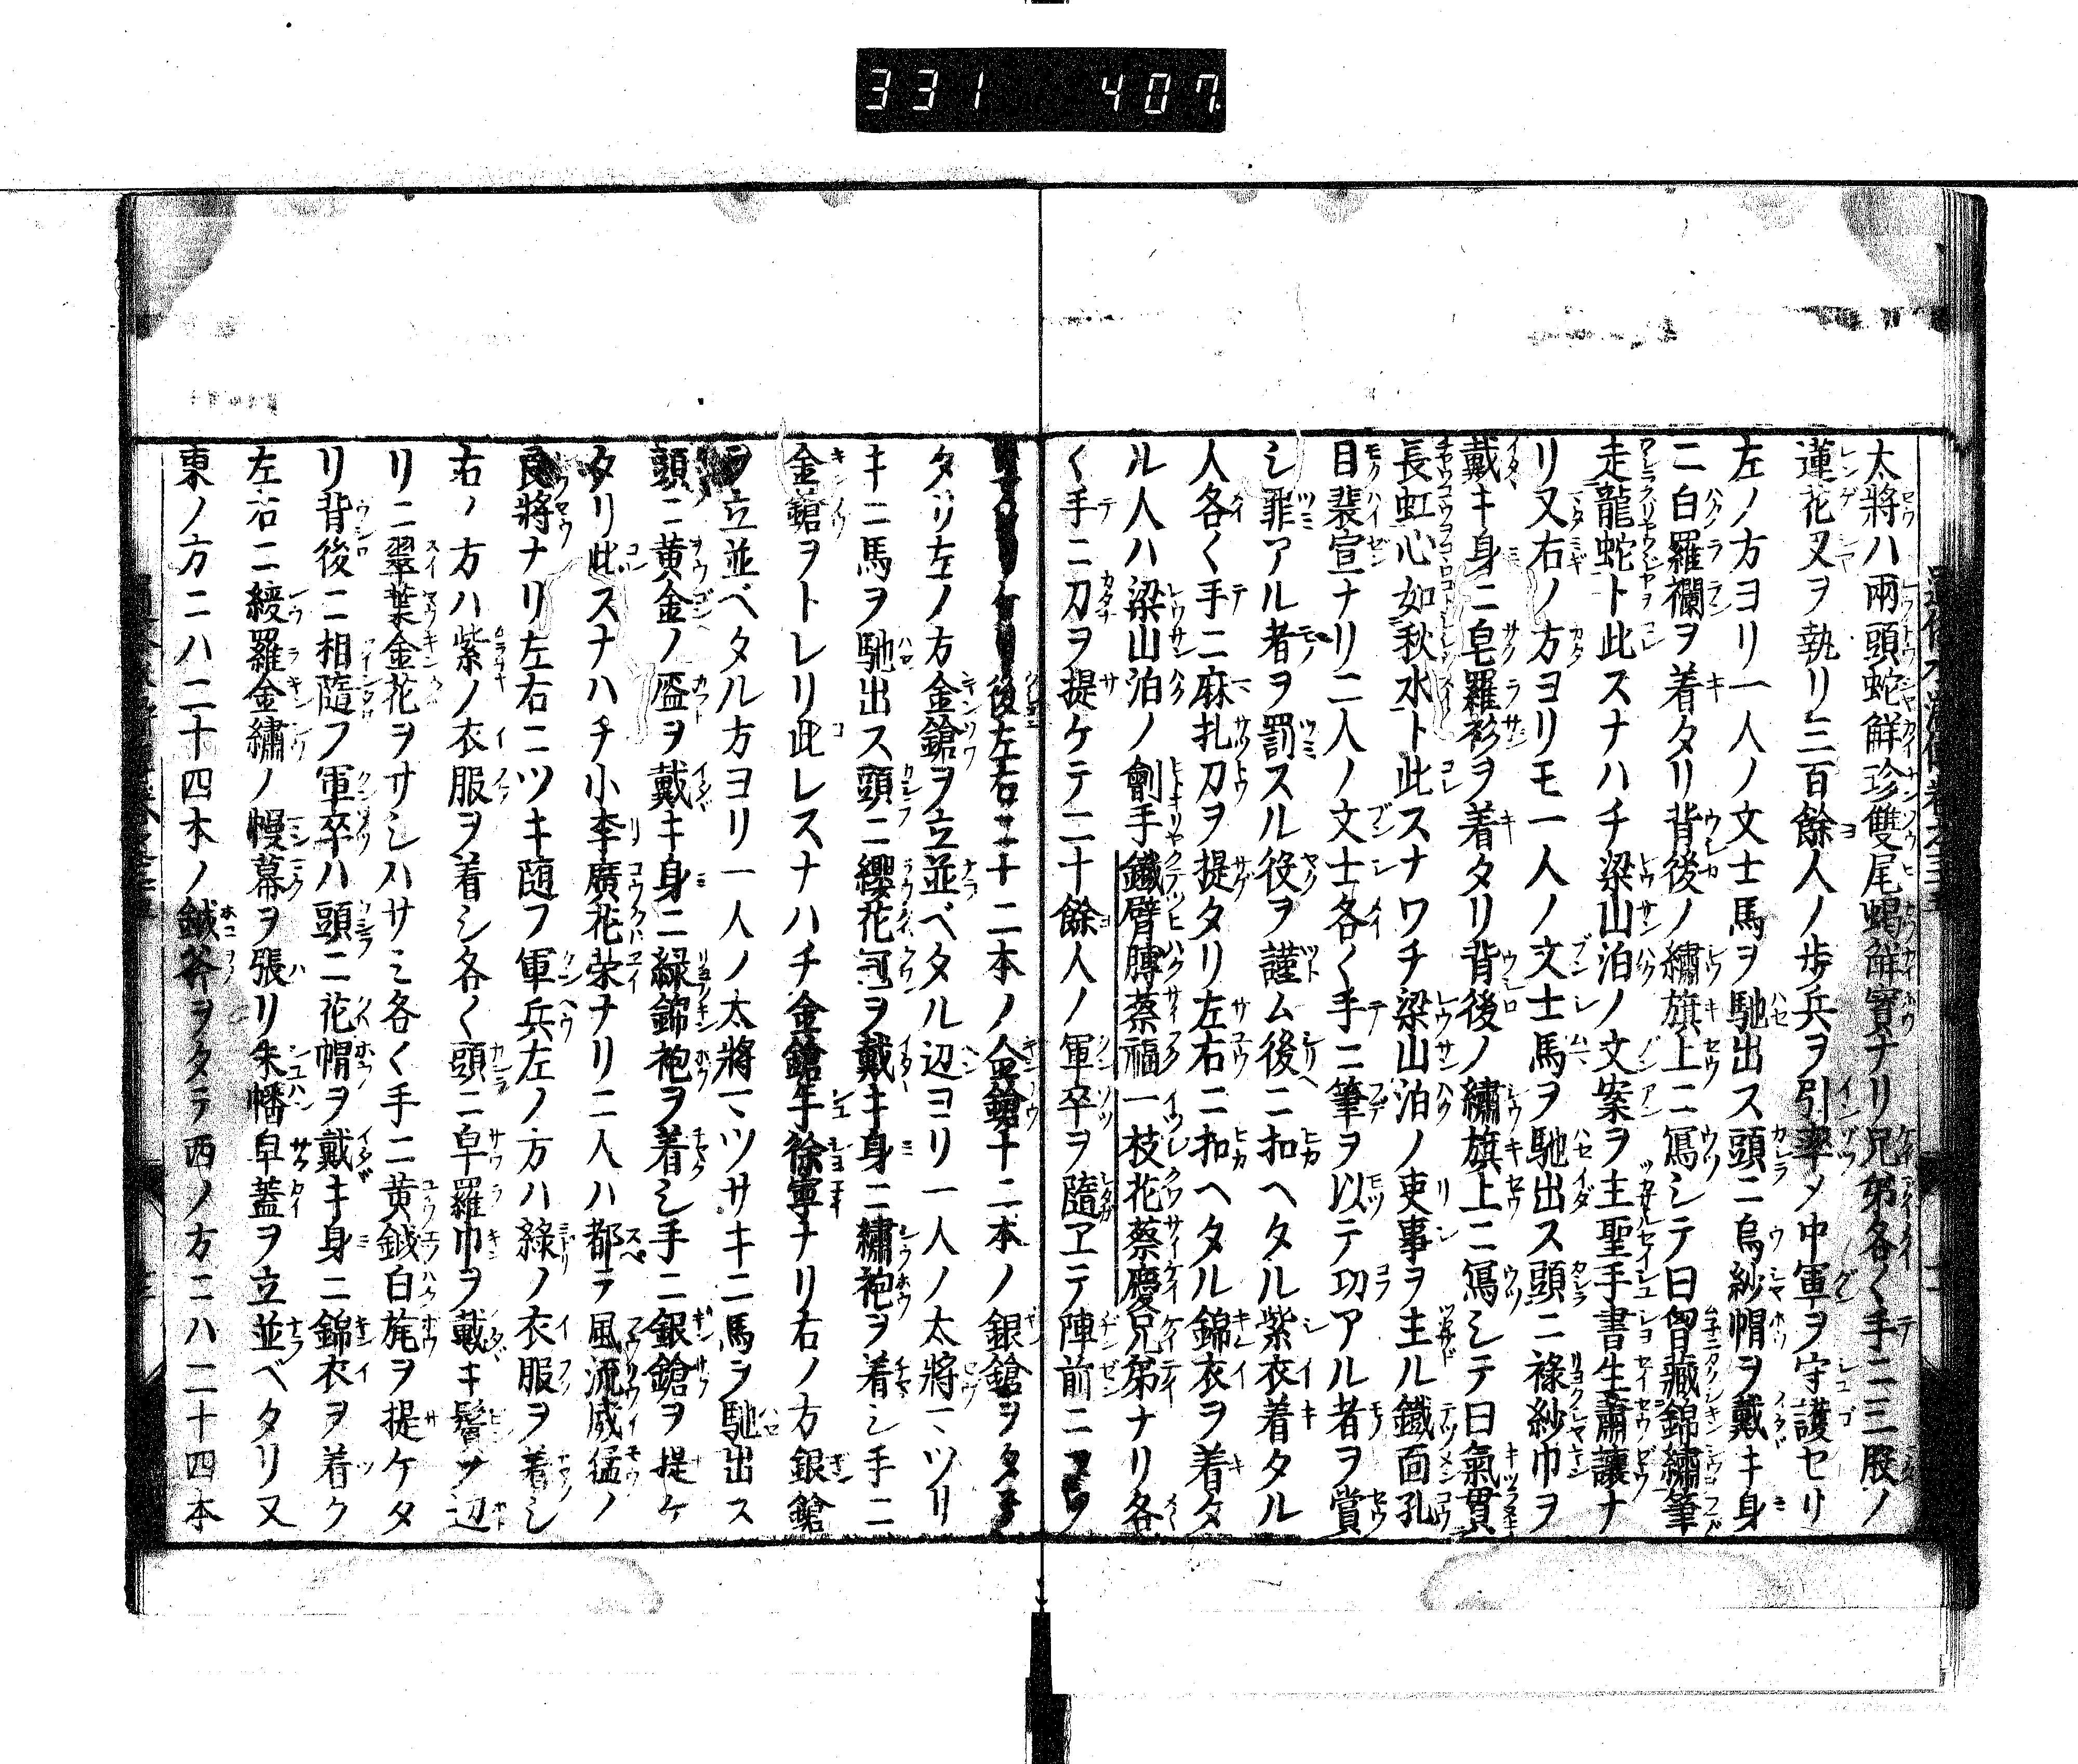 331 407
太將ハ兩頭蛇觧珍雙尾蝎觧寳ナリ兄弟各〱手ニ三股ノ
蓮花叉ヲ執リ三百餘人ノ歩兵ヲ引率メ中軍ヲ守護セリ
左ノ方ヨリ一人ノ文士馬ヲ馳出ス頭ニ烏紗帽ヲ戴キ身
ニ白羅襴ヲ着タリ背後ノ繡旗上ニ寫シテ曰胷藏錦繡筆
走龍蛇ト此スナハチ梁山泊ノ文案ヲ主聖手書生蕭讓ナ
リ又右ノ方ヨリモ一人ノ文士馬ヲ馳出ス頭ニ祿紗巾ヲ
戴キ身ニ皂羅衫ヲ着タリ背後ノ繡旗上ニ寫シテ曰氣貫
長虹心如秋水ト此スナワチ梁山泊ノ吏事ヲ主ル鐵面孔
目裴宣ナリ二人ノ文士各〱手ニ筆ヲ以テ功アル者ヲ賞
シ罪アル者ヲ罰スル役ヲ謹ム後ニ扣ヘタル紫衣着タル
人各〱手ニ麻扎刀ヲ提タリ左右ニ扣ヘタル錦衣ヲ着タ
ル人ハ梁山泊ノ劊手鐵臂膊蔡福一枝花蔡慶兄弟ナリ各
〱手ニ刀ヲ提ケテ二十餘人ノ軍卒ヲ隨ヱテ陣前ニ
後左右ニ十二本ノ金鎗十二本ノ銀鎗ヲタテ
タリ左ノ方金鎗ヲ立並ベタル辺ヨリ一人ノ太將マツリ
キニ馬ヲ馳出ス頭ニ纓花ヲ戴キ身ニ繡袍ヲ着シ手ニ
金鎗ヲトレリ此レスナハチ金鎗手徐寧ナリ右ノ方銀鎗
ヲ立並ベタル方ヨリ一人ノ太將マツサキニ馬ヲ馳出ス
頭ニ黄金ノ盔ヲ戴キ身ニ緑錦袍ヲ着シ手ニ銀鎗ヲ提ケ
タリ此スナハチ小李廣花荣ナリ二人ハ都テ風流威猛ノ
良將ナリ左右ニツキ随フ軍兵左ノ方ハ綠ノ衣服ヲ着シ
右ノ方ハ紫ノ衣服ヲ着シ各〱頭ニ皁羅巾ヲ戴キ鬢ノ辺
リニ翠葉金花ヲサシハサミ各〱手ニ黄鉞白旄ヲ提ケタ
リ背後ニ相隨フ軍卒ハ頭ニ花帽ヲ戴キ身ニ錦衣ヲ着ク
左右ニ綾羅金繡ノ幔幕ヲ張リ朱幡皁蓋ヲ立並ベタリ又
東ノ方ニハ二十四本ノ鉞斧ヲタテ西ノ方ニハ二十四本